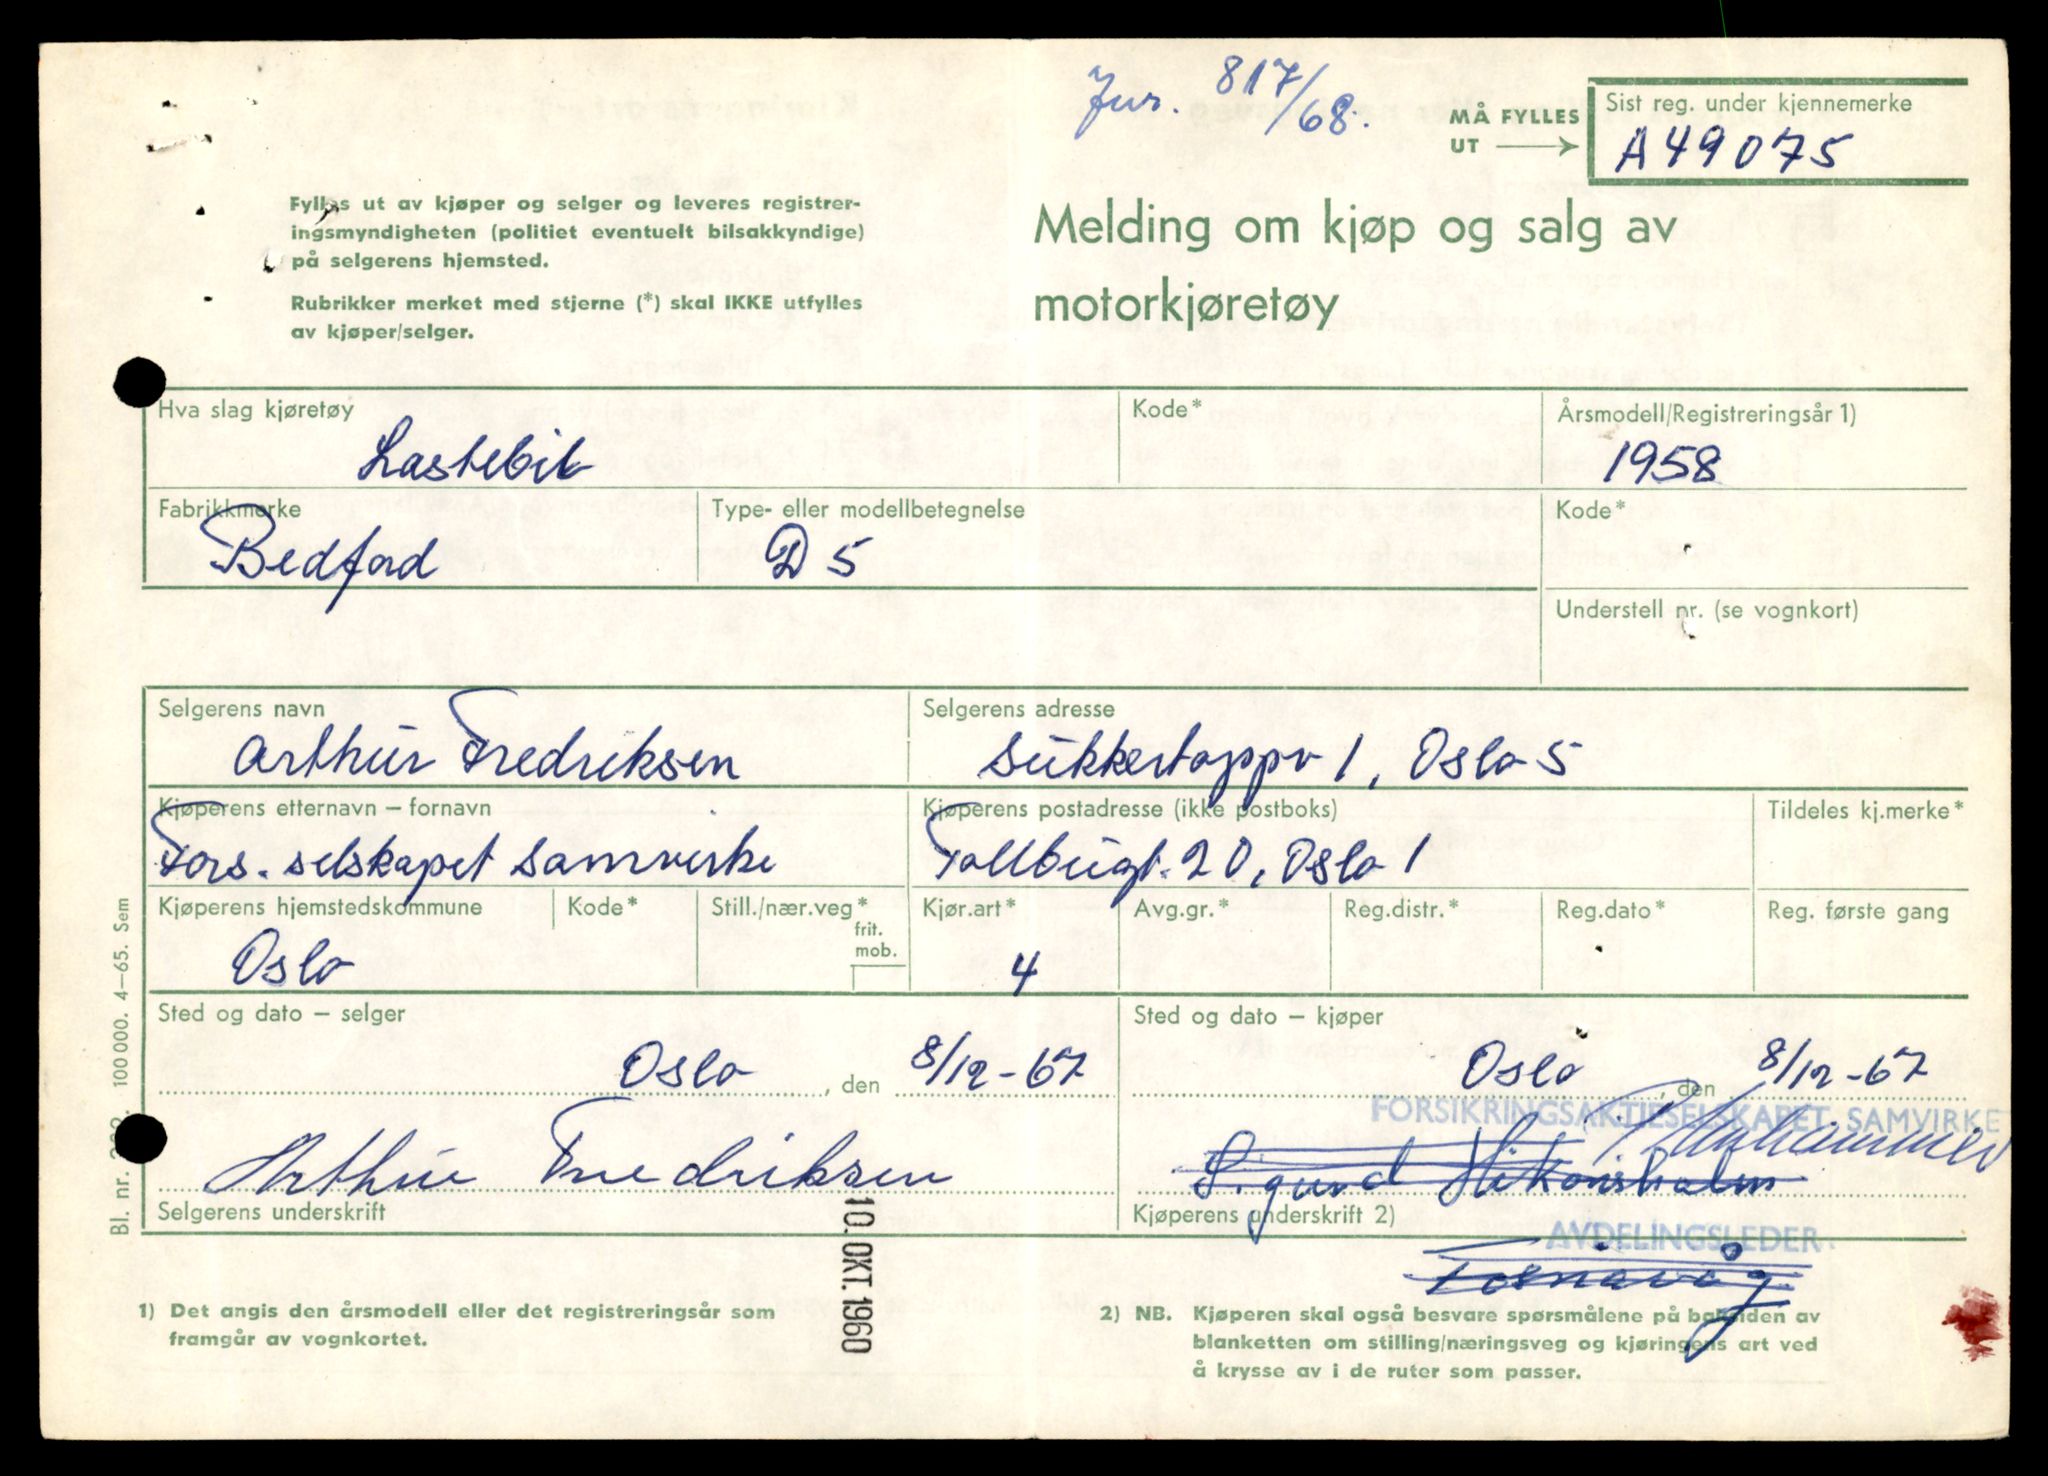 Jur. 817/68.
MÅ FYLLES
UT
Sist reg. under kjennemerke
A49075
Fylles ut av kjøper og selger og leveres registrer-
ingsmyndigheten (politiet eventuelt bilsakkyndige)
på selgerens hjemsted.
Rubrikker merket med stjerne (*) skal IKKE utfylles
av kjøper/selger.
Melding om kjøp og salg av
motorkjøretøy
Hva slag kjøretøy
Lastebil
Kode*
Årsmodell/Registreringsår 1)
1958
Fabrikkmerke
Bedford
Type- eller modellbetegnelse
D5
Kode*
Understell nr. (se vognkort)
Selgerens navn
Arthur Fredriksen
Selgerens adresse
Sukkertoppv 1, Oslo 5
Kjøperens etternavn – fornavn
Fors. selskapet Samvirke
Kjøperens postadresse (ikke postboks)
Tollbugt. 20, Oslo 1
Tildeles kj.merke*
Kjøperens hjemstedskommune
Oslo
Kode*
Still./nær.veg*
frit.
mob.
Kjør.art*
4
Avg.gr.*
Reg.distr.*
Reg.dato*
Reg. første gang
Sted og dato – selger
Oslo, den 8/12-67
Sted og dato – kjøper
Oslo, den 8/12-67
FORSIKRINGSAKTIESELSKAPET SAMVIRKE
Arthur Fredriksen
Sigurd
Selgerens underskrift
Kjøperens underskrift 2)
AVDELINGSLEDER
Fosnavåg
10. OKT. 1960
1) Det angis den årsmodell eller det registreringsår som
framgår av vognkortet.
2) NB. Kjøperen skal også besvare spørsmålene på baksiden av
blanketten om stilling/næringsveg og kjøringens art ved
å krysse av i de ruter som passer.
100 000. 4–65. Sem
Bl. nr.